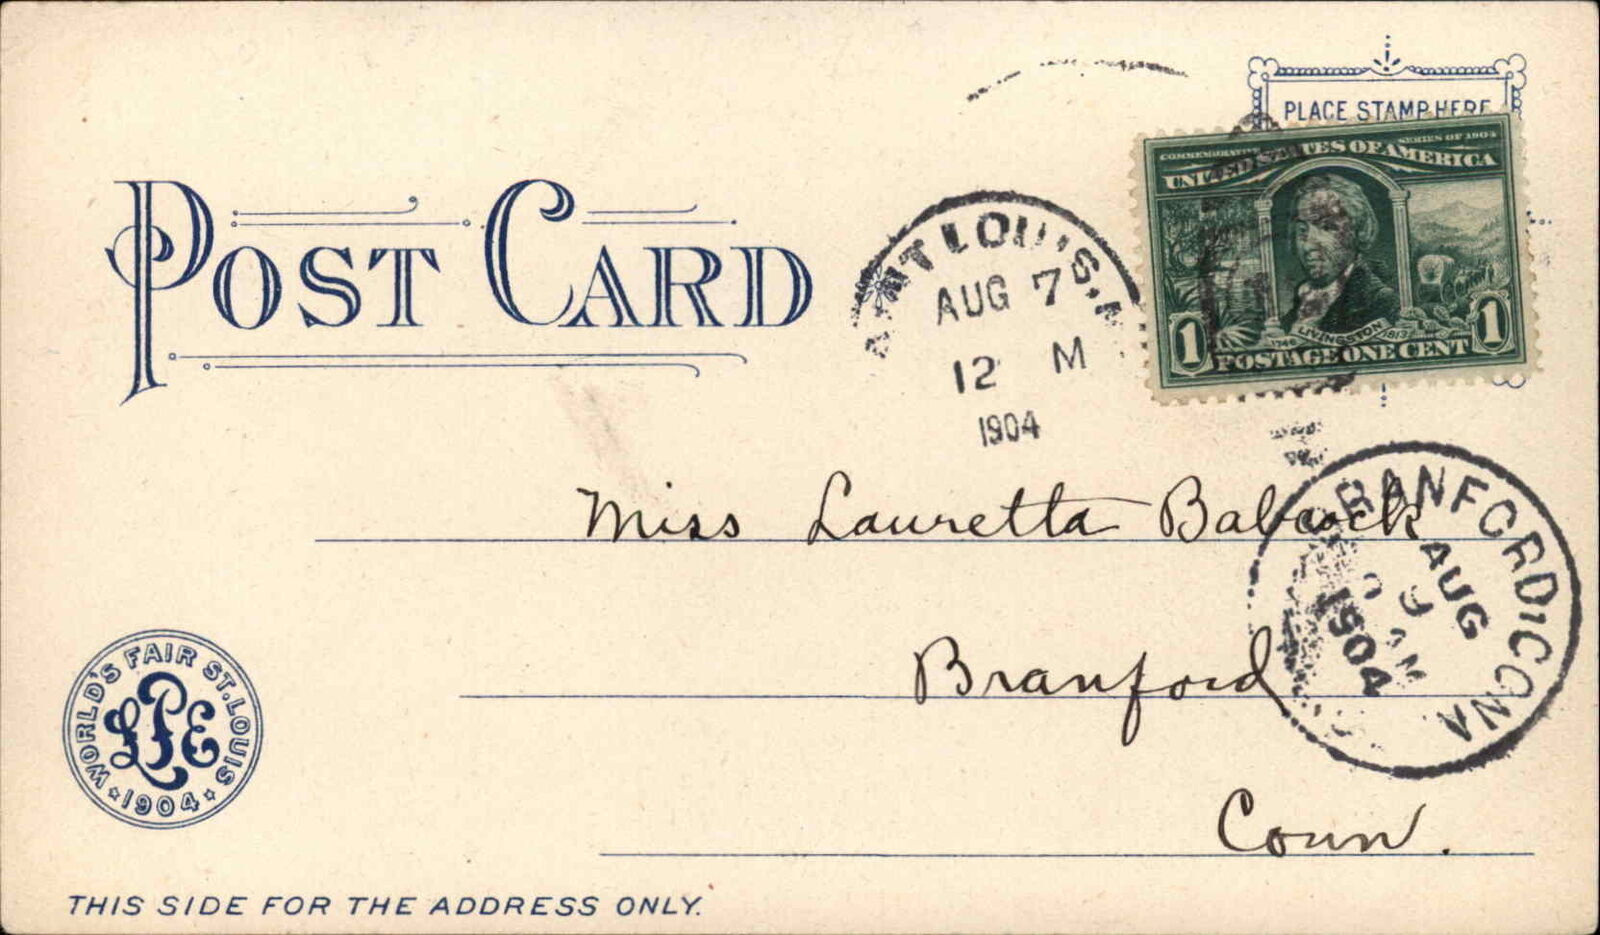 PLACE STAMP HERE
COMMEMORATIVE SERIES OF 1904
UNITED STATES OF AMERICA
1746 LIVINGSTON 1813
1 POSTAGE ONE CENT 1
POST CARD
SAINT LOUIS, M
AUG 7
12 M
1904
Miss Lauretta Babcock
Branford
Conn.
BRANFORD, CONN
AUG
9
AM
1904
WORLD'S FAIR ST. LOUIS
LPE
1904
THIS SIDE FOR THE ADDRESS ONLY.